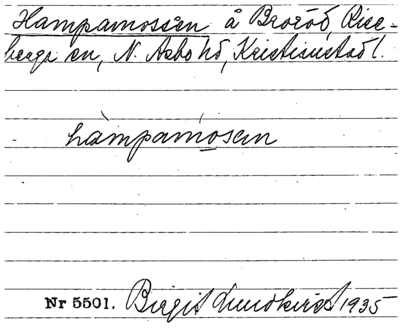 Hampamossen å Brozöd, Rise-
berga sn, N. Asbo hd, Kristianstad l.
hàmpamósen
Nr 5501. Birgit Lundkvist 1935